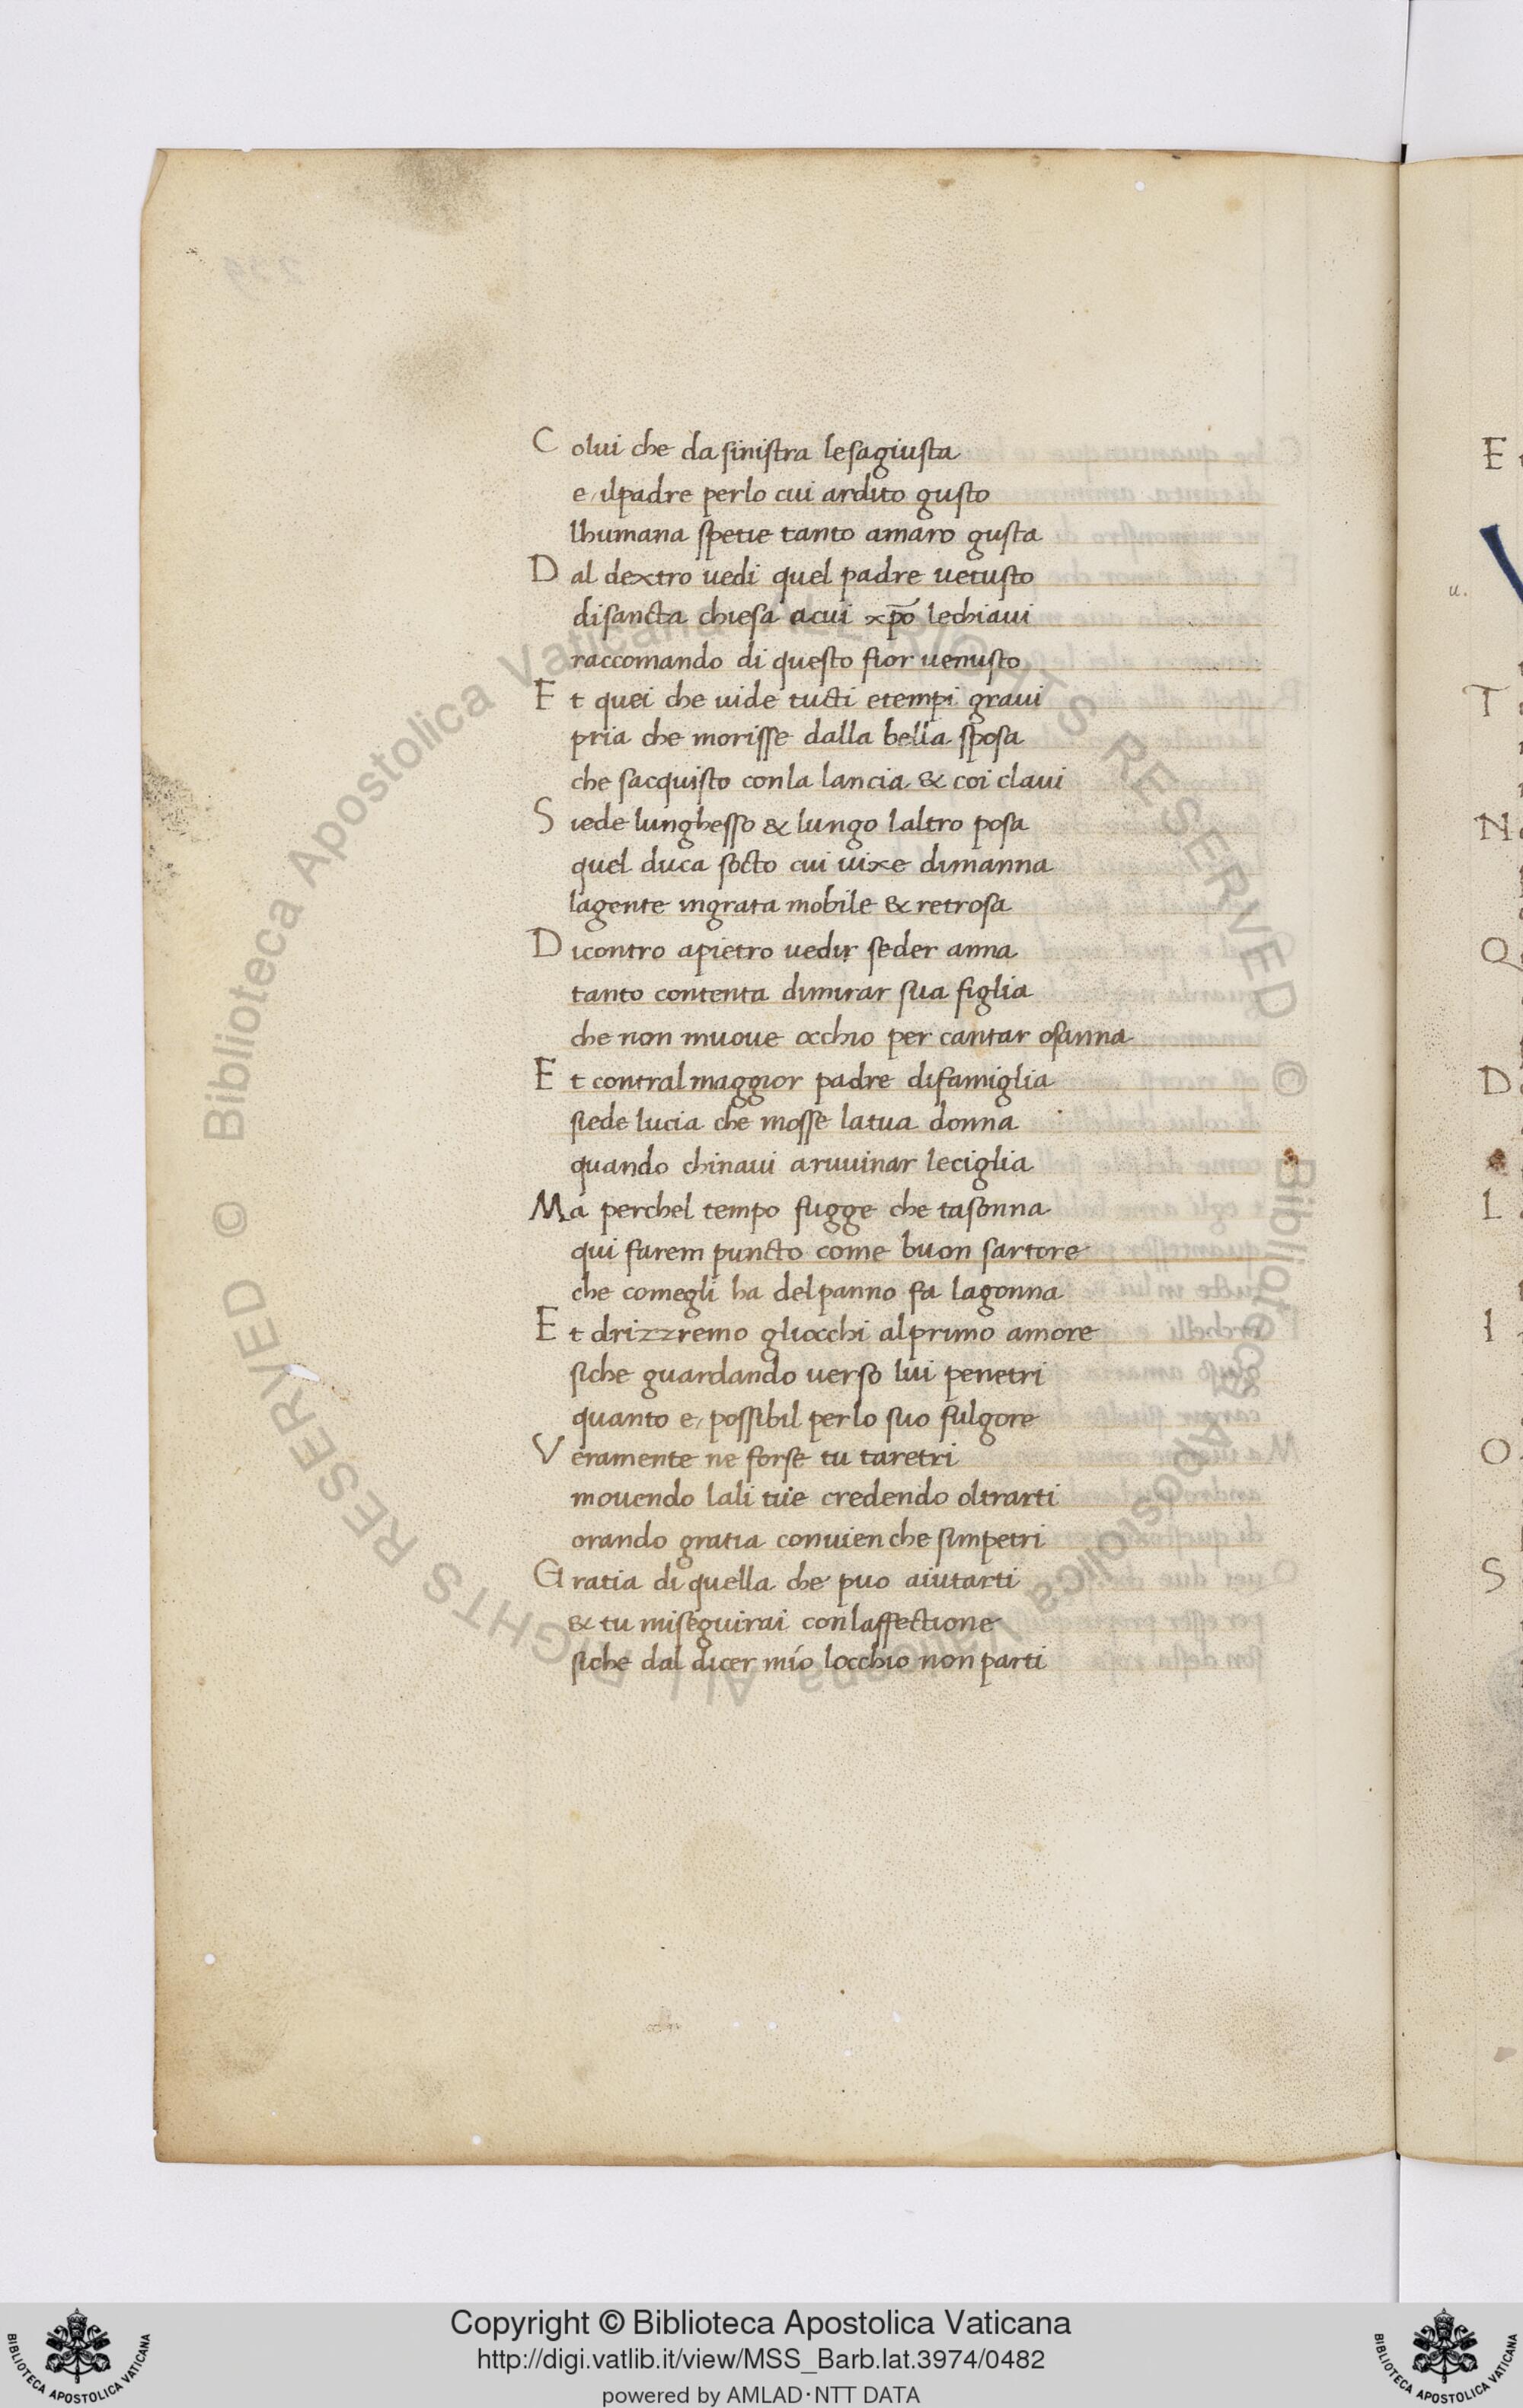 C olui che da sinistra lesagiusta
e / ilpadre perlo cui ardito gusto
lhumana spetie tanto amaro gusta
D al dextro uedi quel padre uetusto
disancta chiesa acui xp̅o lechiaui
raccomando di questo fior uenusto
E t quei che uide tucti etempi graui
pria che morisse dalla bella sposa
che sacquisto conla lancia & coi claui
S iede lunghesso & lungo laltro posa
quel duca socto cui uixe dimanna
lagente ingrata mobile & retrosa
D icontro apietro uedir seder anna
tanto contenta dimirar sua figlia
che non muoue occhio per cantar osanna
E t contralmaggior padre difamiglia
siede lucia che mosse latua donna
quando chinaui aruuinar leciglia
Ma perchel tempo fugge che tasonna
qui farem puncto come buon sartore
che comegli ha delpanno fa lagonna
E t drizzremo gliocchi alprimo amore
siche guardando uerso lui penetri
quanto e / possibil perlo suo fulgore
V eramente ne forse tu taretri
mouendo lali tue credendo oltrarti
orando gratia conuien che simpetri
G ratia di quella che puo aiutarti
& tu miseguirai conlaffectione
siche dal dicer mío locchio non parti
E
u.
T
N
Q
D
L
I
O
S
Biblioteca Apostolica Vaticana ALL RIGHTS RESERVED © Biblioteca Apostolica Vaticana ALL RIGHTS RESERVED ©
BIBLIOTECA APOSTOLICA VATICANA
Copyright © Biblioteca Apostolica Vaticana
http://digi.vatlib.it/view/MSS_Barb.lat.3974/0482
powered by AMLAD·NTT DATA
BIBLIOTECA APOSTOLICA VATICANA